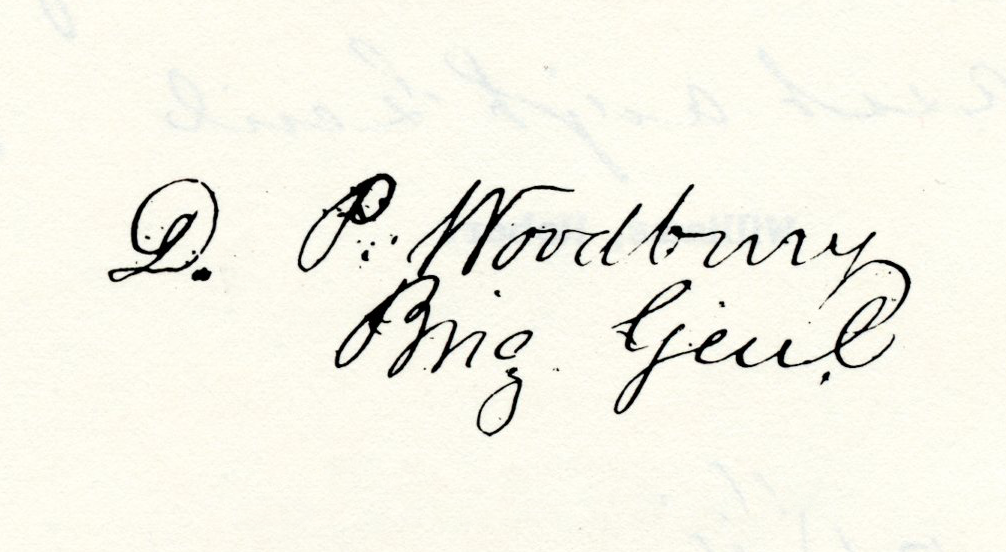 D. P. Woodbury
Brig Genl.